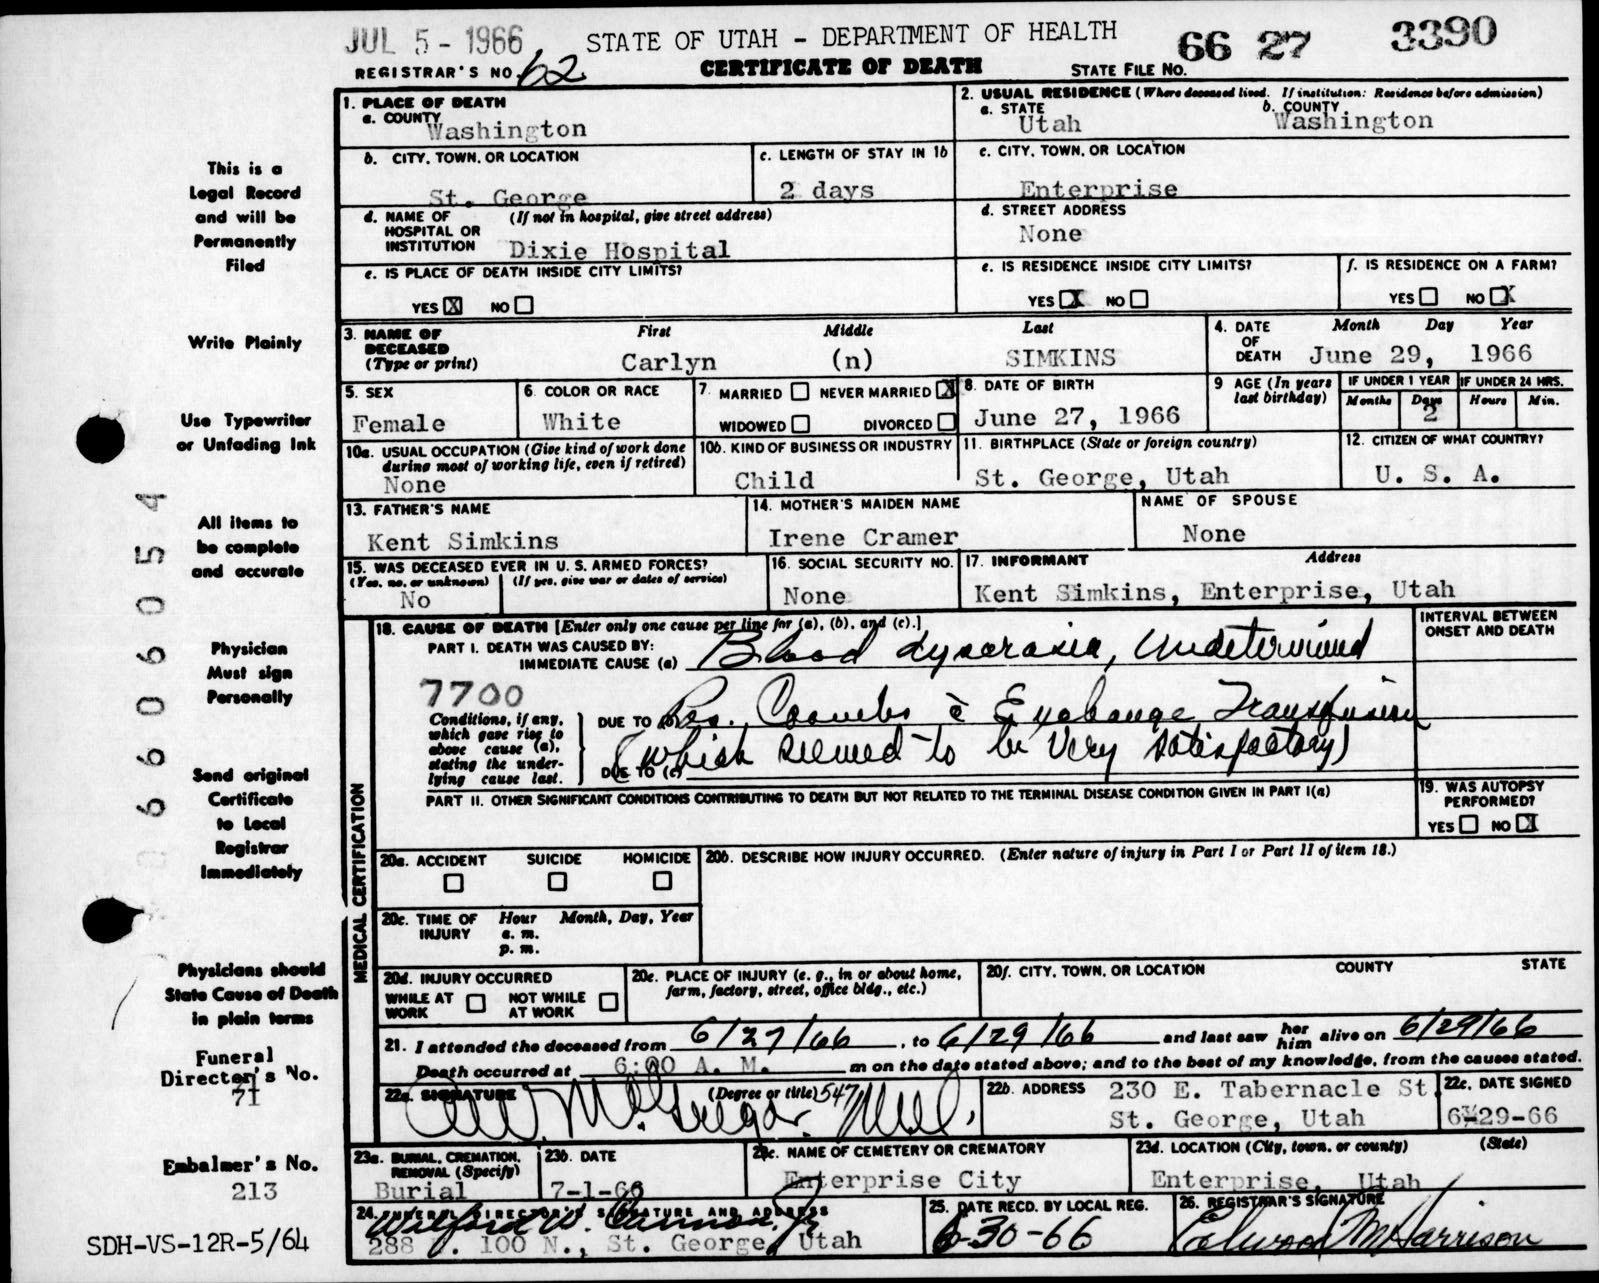 JUL 5 - 1966
STATE OF UTAH - DEPARTMENT OF HEALTH
66 27 3390
REGISTRAR'S NO. 62
CERTIFICATE OF DEATH
STATE FILE NO.
1. PLACE OF DEATH
a. COUNTY
Washington
2. USUAL RESIDENCE (Where deceased lived. If institution: Residence before admission)
a. STATE
Utah
b. COUNTY
Washington
b. CITY, TOWN, OR LOCATION
St. George
c. LENGTH OF STAY IN 1b
2 days
c. CITY, TOWN, OR LOCATION
Enterprise
d. NAME OF HOSPITAL OR INSTITUTION
(If not in hospital, give street address)
Dixie Hospital
d. STREET ADDRESS
None
e. IS PLACE OF DEATH INSIDE CITY LIMITS?
YES X NO
e. IS RESIDENCE INSIDE CITY LIMITS?
YES X NO
f. IS RESIDENCE ON A FARM?
YES NO X
3. NAME OF DECEASED
(Type or print)
First Middle Last
Carlyn (n) SIMKINS
4. DATE OF DEATH
Month Day Year
June 29, 1966
5. SEX
Female
6. COLOR OR RACE
White
7. MARRIED NEVER MARRIED X
WIDOWED DIVORCED
8. DATE OF BIRTH
June 27, 1966
9 AGE (In years last birthday)
IF UNDER 1 YEAR
Months Days
2
IF UNDER 24 HRS.
Hours Min.
10a. USUAL OCCUPATION (Give kind of work done
during most of working life, even if retired)
None
10b. KIND OF BUSINESS OR INDUSTRY
Child
11. BIRTHPLACE (State or foreign country)
St. George, Utah
12. CITIZEN OF WHAT COUNTRY?
U. S. A.
13. FATHER'S NAME
Kent Simkins
14. MOTHER'S MAIDEN NAME
Irene Cramer
NAME OF SPOUSE
None
15. WAS DECEASED EVER IN U. S. ARMED FORCES?
(Yes, no, or unknown) (If yes, give war or dates of service)
No
16. SOCIAL SECURITY NO.
None
17. INFORMANT Address
Kent Simkins, Enterprise, Utah
MEDICAL CERTIFICATION
18. CAUSE OF DEATH [Enter only one cause per line for (a), (b), and (c).]
INTERVAL BETWEEN ONSET AND DEATH
PART I. DEATH WAS CAUSED BY:
IMMEDIATE CAUSE (a) Blood dyscrasia, Undetermined
7700
Conditions, if any,
which gave rise to
above cause (a),
stating the under-
lying cause last.
DUE TO (b) Pos. Coombs c̄ Exchange Transfusion
DUE TO (c) (which seemed to be very satisfactory)
PART II. OTHER SIGNIFICANT CONDITIONS CONTRIBUTING TO DEATH BUT NOT RELATED TO THE TERMINAL DISEASE CONDITION GIVEN IN PART I(a)
19. WAS AUTOPSY PERFORMED?
YES NO X
20a. ACCIDENT SUICIDE HOMICIDE
20b. DESCRIBE HOW INJURY OCCURRED. (Enter nature of injury in Part I or Part II of item 18.)
20c. TIME OF INJURY
Hour Month, Day, Year
a. m.
p. m.
20d. INJURY OCCURRED
WHILE AT WORK NOT WHILE AT WORK
20e. PLACE OF INJURY (e. g., in or about home,
farm, factory, street, office bldg., etc.)
20f. CITY, TOWN, OR LOCATION COUNTY STATE
21. I attended the deceased from 6/27/66, to 6/29/66 and last saw her him alive on 6/29/66
Death occurred at 6:00 A. M. m on the date stated above; and to the best of my knowledge, from the causes stated.
22a. SIGNATURE (Degree or title) 547
McGregor, M.D.
22b. ADDRESS
230 E. Tabernacle St
St. George, Utah
22c. DATE SIGNED
6-29-66
23a. BURIAL, CREMATION, REMOVAL (Specify)
Burial
23b. DATE
7-1-66
23c. NAME OF CEMETERY OR CREMATORY
Enterprise City
23d. LOCATION (City, town, or county) (State)
Enterprise, Utah
24. FUNERAL DIRECTOR'S SIGNATURE AND ADDRESS
Wilford W. Cannon, Jr
288 W. 100 N., St. George, Utah
25. DATE RECD. BY LOCAL REG.
6-30-66
26. REGISTRAR'S SIGNATURE
M Harrison
This is a
Legal Record
and will be
Permanently
Filed
Write Plainly
Use Typewriter
or Unfading Ink
All items to
be complete
and accurate
Physician
Must sign
Personally
Send original
Certificate
to Local
Registrar
Immediately
Physicians should
State Cause of Death
in plain terms
Funeral
Director's No.
71
Embalmer's No.
213
SDH-VS-12R-5/64
66060054